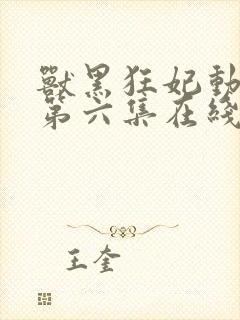 獸黑狂妃動
第六集在綫
王奎